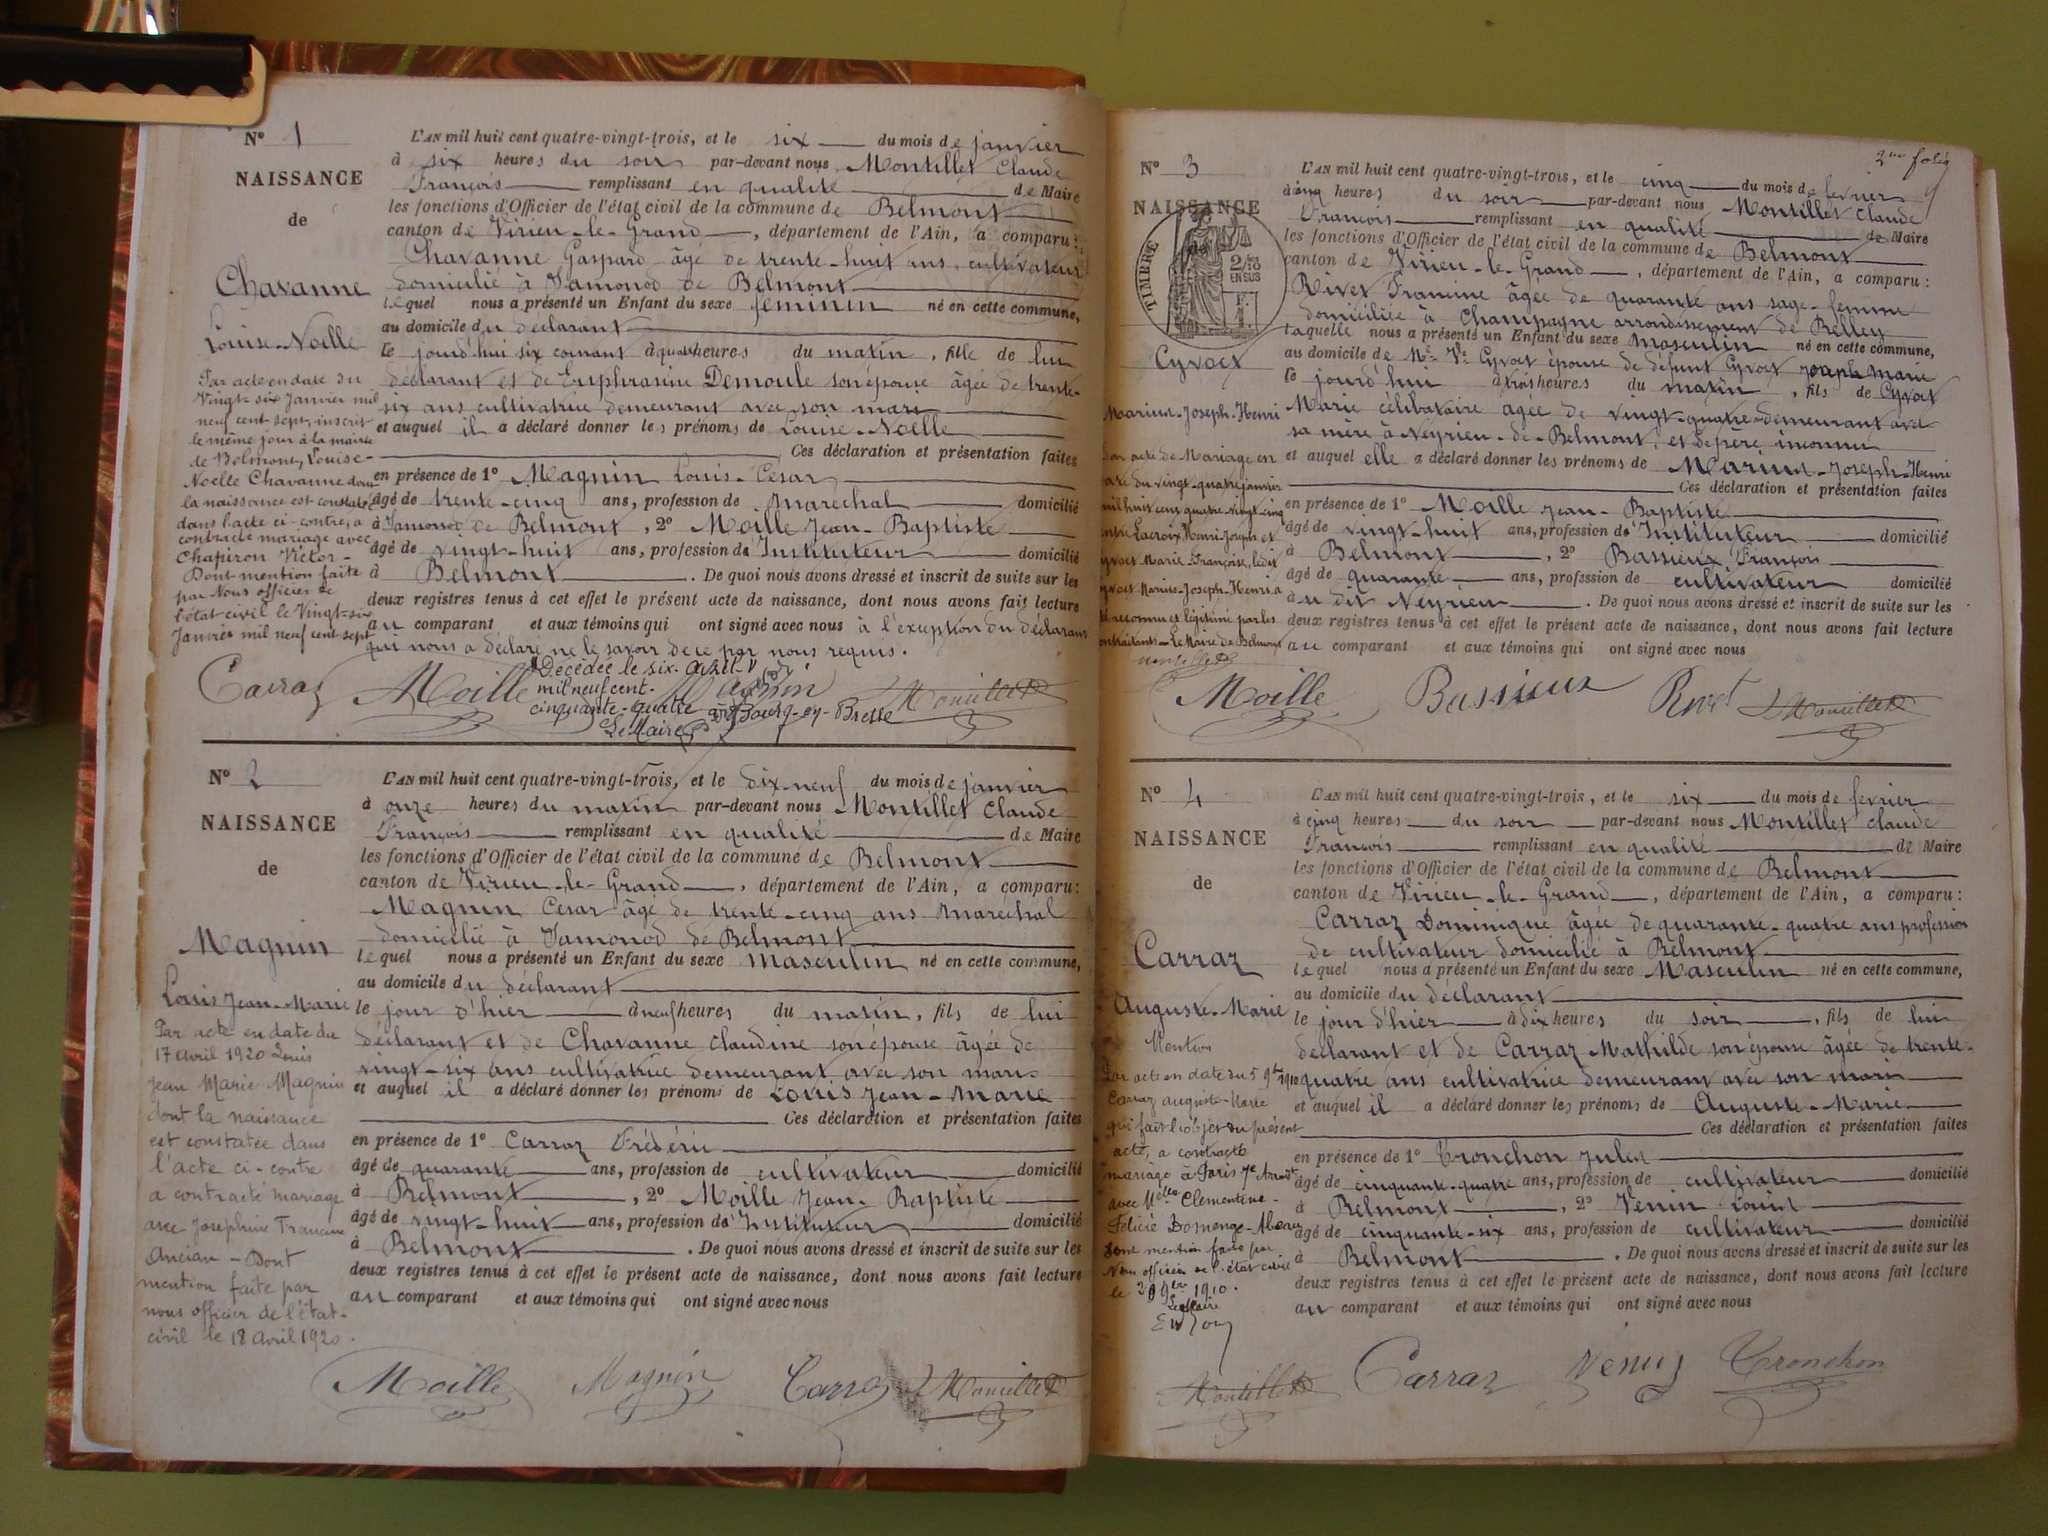 N° 1
NAISSANCE
de
Chavanne
Louise-Noëlle
Par acte en date du
Vingt-six Janvier mil
neuf cent sept, inscrit
le même jour à la mairie
de Belmont, Louise-
Noëlle Chavanne dont
la naissance est constatée
dans l'acte ci-contre, a
contracté mariage avec
Chapiron Victor-
Dont mention faite
par Nous officier de
l'état civil le Vingt-six
Janvier mil neuf cent sept
L'AN mil huit cent quatre-vingt-trois, et le six du mois de janvier
à six heures du soir par-devant nous Montillet Claude
François remplissant en qualité de Maire
les fonctions d'Officier de l'état civil de la commune de Belmont
canton de Virieu-le-Grand, département de l'Ain, a comparu:
Chavanne Gaspard âgé de trente-huit ans, cultivateur
domicilié à Vamonod de Belmont
lequel nous a présenté un Enfant du sexe féminin né en cette commune,
au domicile du déclarant
le jourd'hui six courant à quatre heures du matin, fille de lui
déclarant et de Euphrasine Demoule son épouse âgée de trente-
six ans cultivatrice demeurant avec son mari
et auquel il a déclaré donner les prénoms de Louise-Noëlle
Ces déclaration et présentation faites
en présence de 1° Magnin Louis-César
âgé de trente-cinq ans, profession de maréchal domicilié
à Vamonod de Belmont, 2° Moille Jean-Baptiste
âgé de vingt-huit ans, profession de Instituteur domicilié
à Belmont. De quoi nous avons dressé et inscrit de suite sur les
deux registres tenus à cet effet le présent acte de naissance, dont nous avons fait lecture
au comparant et aux témoins qui ont signé avec nous à l'exception du déclarant
qui nous a déclaré ne le savoir de ce par nous requis.
Décédée le six Avril
mil neuf cent-
cinquante-quatre à Bourg-en-Bresse
Le Maire
Carraz Moille Magnin Montillet
N° 2
NAISSANCE
de
Magnin
Louis Jean-Marie
Par acte en date du
17 avril 1920 Louis
Jean Marie Magnin
dont la naissance
est constatée dans
l'acte ci-contre
a contracté mariage
avec Joséphine Francine
Ancian - Dont
mention faite par
nous officier de l'état-
civil le 18 avril 1920.
L'AN mil huit cent quatre-vingt-trois, et le dix-neuf du mois de janvier
à onze heures du matin par-devant nous Montillet Claude
François remplissant en qualité de Maire
les fonctions d'Officier de l'état civil de la commune de Belmont
canton de Virieu-le-Grand, département de l'Ain, a comparu:
Magnin Cesar âgé de trente-cinq ans maréchal
domicilié à Vamonod de Belmont
lequel nous a présenté un Enfant du sexe masculin né en cette commune,
au domicile du déclarant
le jour d'hier à neuf heures du matin, fils de lui
déclarant et de Chavanne Claudine son épouse âgée de
vingt-six ans cultivatrice demeurant avec son mari
et auquel il a déclaré donner les prénoms de Louis Jean-Marie
Ces déclaration et présentation faites
en présence de 1° Carraz Frédéric
âgé de quarante ans, profession de cultivateur domicilié
à Belmont, 2° Moille Jean-Baptiste
âgé de vingt-huit ans, profession de Instituteur domicilié
à Belmont. De quoi nous avons dressé et inscrit de suite sur les
deux registres tenus à cet effet le présent acte de naissance, dont nous avons fait lecture
au comparant et aux témoins qui ont signé avec nous
Moille Magnin Carraz Montillet
2me folio
N° 3
NAISSANCE
TIMBRE
2/10
EN SUS
Cyvoct
Marius-Joseph-Henri
Par acte de Mariage en
date du vingt-quatre janvier
mil huit cent quatre-vingt-cinq
entre Lacroix Henri Joseph et
Cyvoct Marie-Françoise, ledit
Cyvoct Marius-Joseph-Henri a
été reconnu et légitimé par les
contractants - Le Maire de Belmont
Montillet
L'AN mil huit cent quatre-vingt-trois, et le cinq du mois de fevrier
à cinq heures du soir par-devant nous Montillet Claude
François remplissant en qualité de Maire
les fonctions d'Officier de l'état civil de la commune de Belmont
canton de Virieu-le-Grand, département de l'Ain, a comparu:
Rivet Francine âgée de quarante ans sage-femme
domiciliée à Champagne arrondissement de Belley
laquelle nous a présenté un Enfant du sexe masculin né en cette commune,
au domicile de Me Ve Cyvoct épouse de défunt Cyvoct Joseph Marie
le jourd'hui à trois heures du matin, fils de Cyvoct
Marie célibataire âgée de vingt-quatre demeurant avec
sa mère à Neyrieu-de-Belmont, et de père inconnu
et auquel elle a déclaré donner les prénoms de Marius-Joseph-Henri
Ces déclaration et présentation faites
en présence de 1° Moille Jean-Baptiste
âgé de vingt-huit ans, profession de Instituteur domicilié
à Belmont, 2° Bassieux François
âgé de quarante ans, profession de cultivateur domicilié
au dit Neyrieu. De quoi nous avons dressé et inscrit de suite sur les
deux registres tenus à cet effet le présent acte de naissance, dont nous avons fait lecture
au comparant et aux témoins qui ont signé avec nous
Moille Bassieux Rivet Montillet
N° 4
NAISSANCE
de
Carraz
Auguste-Marie
Mention
Par acte en date du 5 9bre 1910
Carraz Auguste-Marie
qui fait l'objet du présent
acte, a contracté
mariage à Paris 7e Arrondt
avec Melle Clémentine-
Félicie Domenge
Dont mention faite par
Nous officier de l'état civil
le 20 9bre 1910.
Le Maire
L'AN mil huit cent quatre-vingt-trois, et le six du mois de fevrier
à cinq heures du soir par-devant nous Montillet Claude
François remplissant en qualité de Maire
les fonctions d'Officier de l'état civil de la commune de Belmont
canton de Virieu-le-Grand, département de l'Ain, a comparu:
Carraz Dominique âgée de quarante-quatre ans profession
de cultivateur domicilié à Belmont
lequel nous a présenté un Enfant du sexe Masculin né en cette commune,
au domicile du déclarant
le jour d'hier à dix heures du soir, fils de lui
declarant et de Carraz Mathilde son épouse âgée de trente-
quatre ans cultivatrice demeurant avec son mari
et auquel il a déclaré donner les prénoms de Auguste-Marie
Ces déclaration et présentation faites
en présence de 1° Tronchon Jules
âgé de cinquante-quatre ans, profession de cultivateur domicilié
à Belmont, 2° Venin Louis
âgé de cinquante-six ans, profession de cultivateur domicilié
à Belmont. De quoi nous avons dressé et inscrit de suite sur les
deux registres tenus à cet effet le présent acte de naissance, dont nous avons fait lecture
au comparant et aux témoins qui ont signé avec nous
Montillet Carraz Tronchon